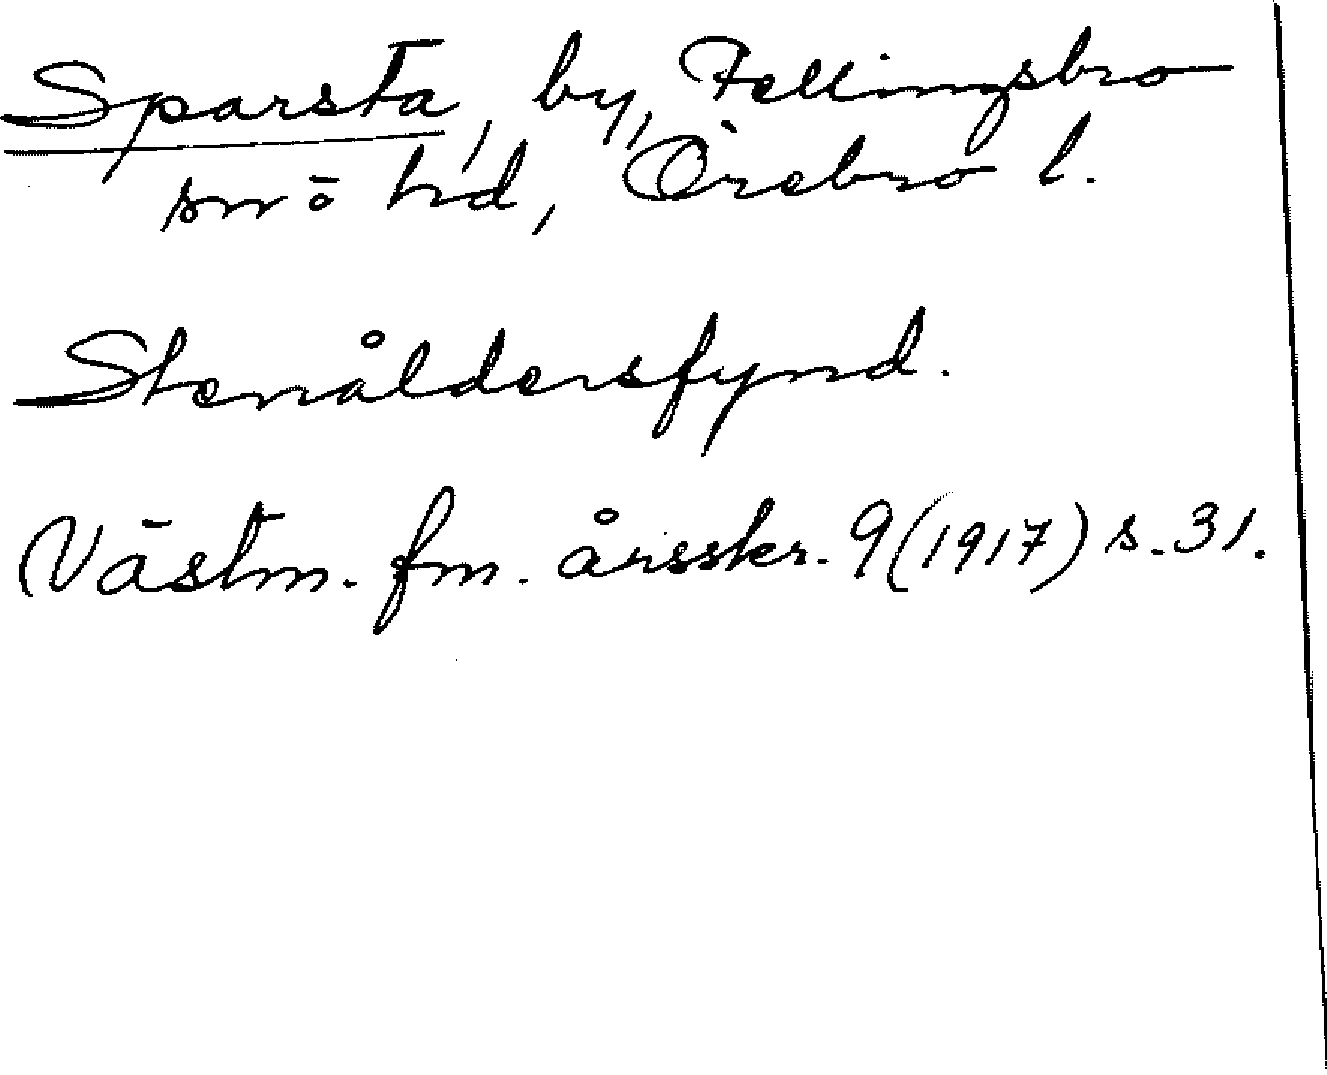 Sparsta, by, Fellingsbro
sn o hd, Örebro l.
Stenåldersfynd.
Västm. fm. årsskr. 9 (1917) s. 31.